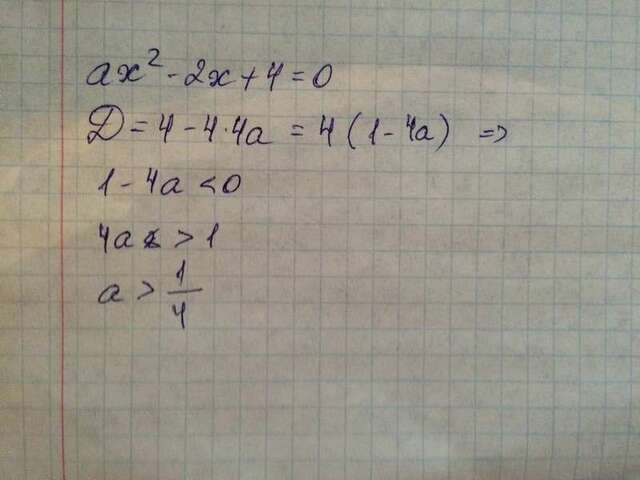 ax² - 2x + 4 = 0
D = 4 - 4·4a = 4(1 - 4a) ⇒
1 - 4a < 0
4a > 1
a > 1/4